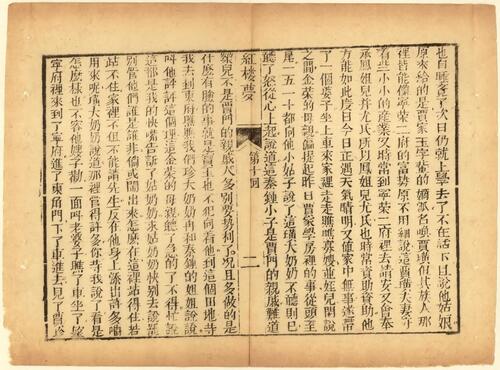 也自睡覺了次日仍就上學去了不在話下且說他姑娘
原來給的是賈家玉字輩的嫡派名喚賈璜但其族人那
裡皆能像寧榮二府的富勢原不用細說這賈璜夫妻守
着些小小的產業又時常到寧榮二府裡去請安又會奉
承鳳姐兒並尤氏所以鳳姐兒尤氏也時常資助資助他
方能如此度日今日正遇天氣晴明又值家中無事遂帶
了一個婆子坐上車來家裡走走瞧瞧寡嫂並姪兒閒說
之間金榮的母親偏提起昨日賈家學房裡的事從頭至
尾一五一十都向他小姑子說了這璜大奶奶不聽則已
聽了怒從心上起說道這秦鍾小子是賈門的親戚難道
紅樓夢 第十回 二
榮兒不是賈門的親戚人多別要勢利了況且多做的是
什麽有臉的事就是寶玉也不犯向着他到這個田地等
我去到東府瞧瞧我們珍大奶奶再和秦鍾的姐姐說說
叫他評評這個理這金榮的母親聽了急的了不得忙說
這都是我的快嘴告訴了姑奶奶求姑奶奶快別去說罷
別管他們誰是誰非倘或鬧出來怎麽在這裡站得住若
站不住家裡不但不能請先生反在他身上添出許多嚼
用來呢璜大奶奶說道那裡管得許多你等我說了看是
怎麽樣也不容他嫂子勸一面叫老婆子瞧了車坐了望
寧府裡來到了寧府進了東角門下了車進去見了賈珍